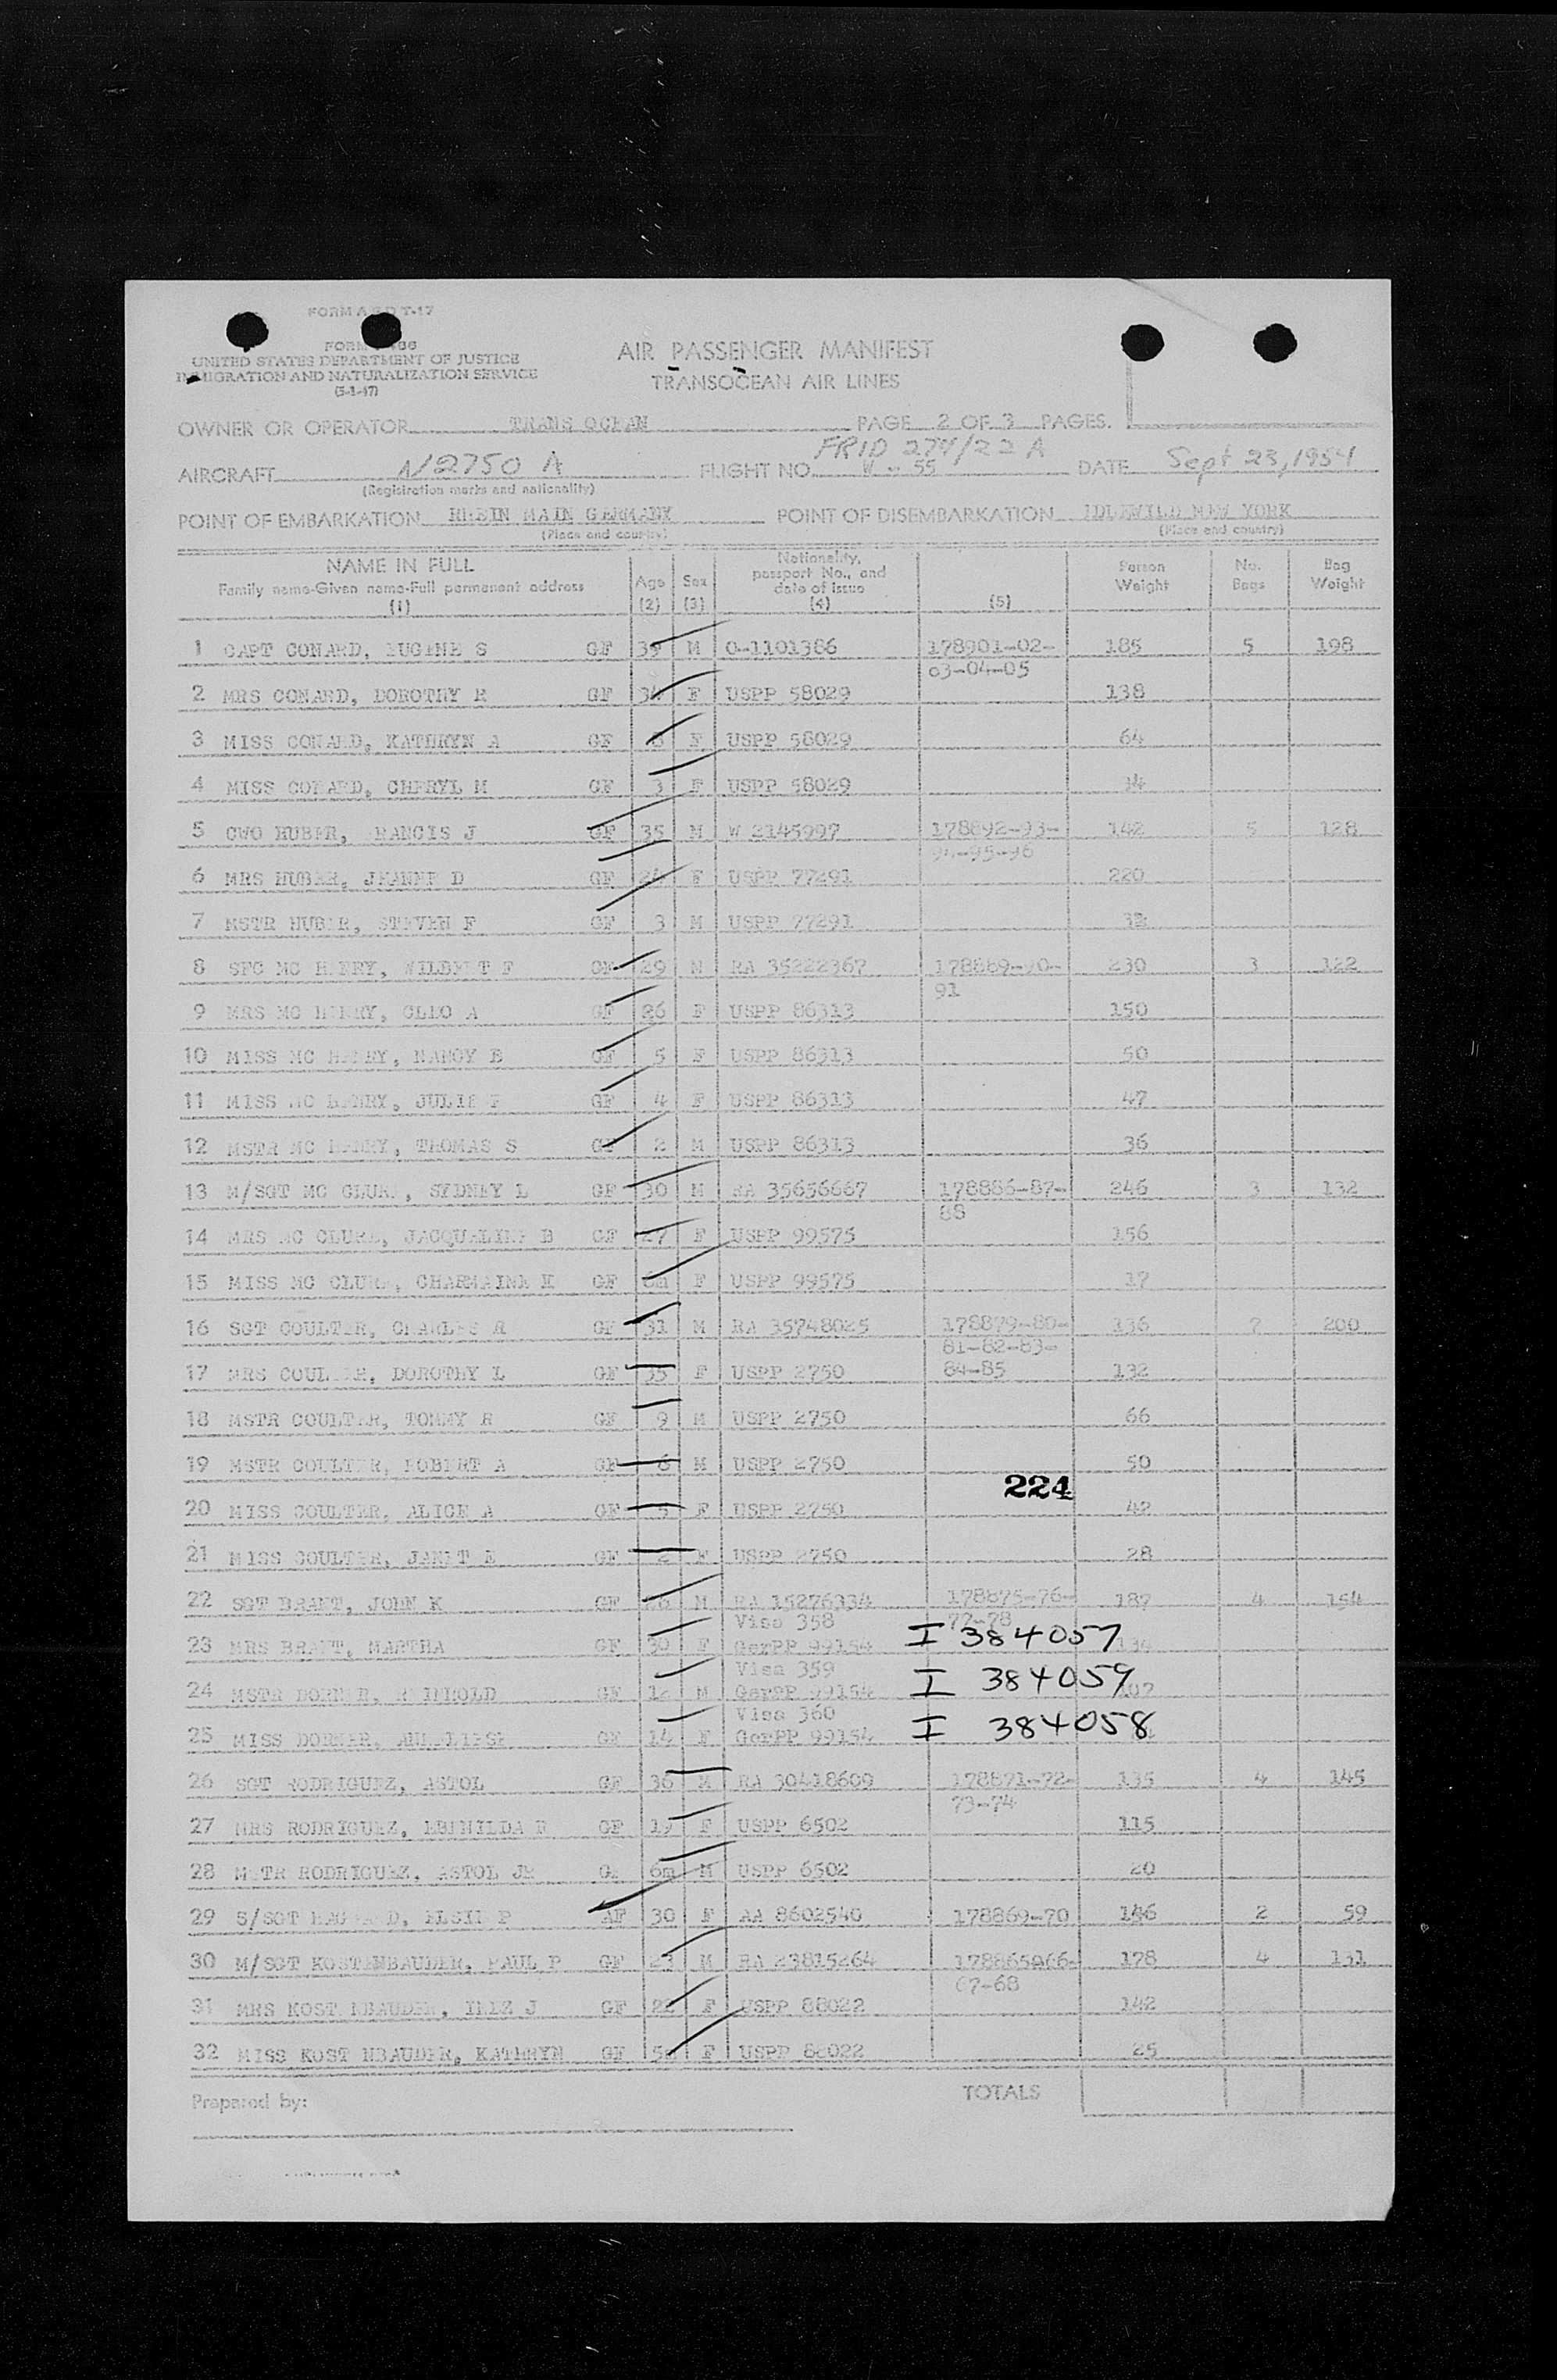 FORM A
T-17
UNITED STATES DEPARTMENT OF JUSTICE
IMMIGRATION AND NATURALIZATION SERVICE
(5-1-47)
AIR PASSENGER MANIFEST
TRANSOCEAN AIR LINES
OWNER OR OPERATOR TRANS OCEAN PAGE 2 OF 3 PAGES.
FRID 274/22 A
AIRCRAFT N2750 A FLIGHT NO. W - 55 DATE Sept 23, 1954
(Registration marks and nationality)
POINT OF EMBARKATION RHEIN MAIN GERMANY POINT OF DISEMBARKATION IDLEWILD NEW YORK
(Place and country) (Place and country)
NAME IN FULL
Family name-Given name-Full permanent address
(1)
Age
(2)
Sex
(3)
Nationality,
passport No., and
date of issue
(4)
(5)
Person
Weight
No.
Bags
Bag
Weight
1 CAPT CONARD, EUGENE S GF 39 M O-1101386 178901-02- 185 5 198
03-04-05
2 MRS CONARD, DOROTHY R GF F USPP 58029 138
3 MISS CONARD, KATHRYN A GF 8 F USPP 58029 64
4 MISS CONARD, CHERYL M GF 3 F USPP 58029 34
5 CWO HUBER, FRANCIS J GF 35 M W 2145997 178892-93- 142 5 128
94-95-96
6 MRS HUBER, JEANNE D GF 24 F USPP 77291 220
7 MSTR HUBER, STEVEN F GF 3 M USPP 77291 32
8 SFC MC HENRY, WILBERT F GF 29 M RA 35222367 178889-90- 230 3 122
91
9 MRS MC HENRY, CLEO A GF 26 F USPP 86313 150
10 MISS MC HENRY, NANCY B GF 5 F USPP 86313 50
11 MISS MC HENRY, JULIE F GF 4 F USPP 86313 47
12 MSTR MC HENRY, THOMAS S GF 2 M USPP 86313 36
13 M/SGT MC CLURE, SYDNEY L GF 30 M RA 35656667 178886-87- 246 3 132
88
14 MRS MC CLURE, JACQUALINE B GF 27 F USPP 99575 156
15 MISS MC CLURE, CHARMAINE GF 6m F USPP 99575 17
16 SGT COULTER, CHARLES R GF 31 M RA 35748025 178879-80- 136 7 200
81-82-83-
17 MRS COULTER, DOROTHY L GF 35 F USPP 2750 84-85 132
18 MSTR COULTER, TOMMY R GF 9 M USPP 2750 66
19 MSTR COULTER, ROBERT A GF 6 M USPP 2750 50
224
20 MISS COULTER, ALICE A GF 5 F USPP 2750 42
21 MISS COULTER, JANET E GF 2 F USPP 2750 28
22 SGT BRANT, JOHN K GF M RA 15276334 178875-76- 187 4 154
Visa 358 77-78
23 MRS BRANT, MARTHA GF 30 F GerPP 99154 I 384057 134
Visa 359
24 MSTR DORNER, REINHOLD GF 12 M GerPP 99154 I 384059 107
Visa 360
25 MISS DORNER, ANNELIESE GF 14 F GerPP 99154 I 384058
26 SGT RODRIGUEZ, ASTOL GF 36 M RA 30418609 178871-72- 135 4 145
73-74
27 MRS RODRIGUEZ, GF 19 F USPP 6502 115
28 MSTR RODRIGUEZ, ASTOL JR GF 6m M USPP 6502 20
29 S/SGT ELSIE P AF 30 F AA 8602540 178869-70 146 2 59
30 M/SGT KOSTENBAUDER, PAUL P GF 23 M RA 23815264 178865A66- 178 4 131
67-68
31 MRS KOSTENBAUDER, INEZ J GF 22 F USPP 88022 142
32 MISS KOSTENBAUDER, KATHRYN GF F USPP 88022 25
Prepared by:
TOTALS